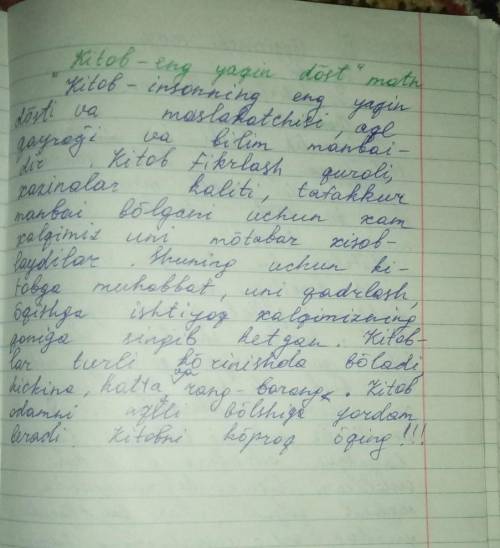 "Kitob - eng yaqin dōst" matn
"Kitob - insonning eng yaqin
dōsti va maslahatchisi, aql
qayrog'i va bilim manbai-
dir. Kitob fikrlash quroli,
xazinalar kaliti, tafakkur
manbai bōlgani uchun xam
xalqimiz uni mōtabar xisob-
laydilar. Shuning uchun ki-
tobga muhabbat, uni qadrlash,
ōqishga ishtiyoq xalqimizning
qoniga singib ketgan. Kitob-
lar turli kōrinishda bōladi,
kickina, katta rang-barang. Kitob
odamni aqlli bōlshiga yordam
beradi. Kitobni kōproq ōqing!!!